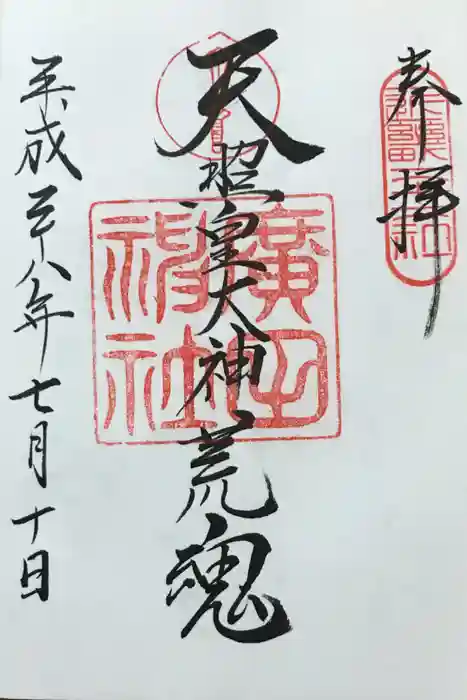 奉拝
天照皇大神荒魂
廣田
神社
平成二十八年七月十日